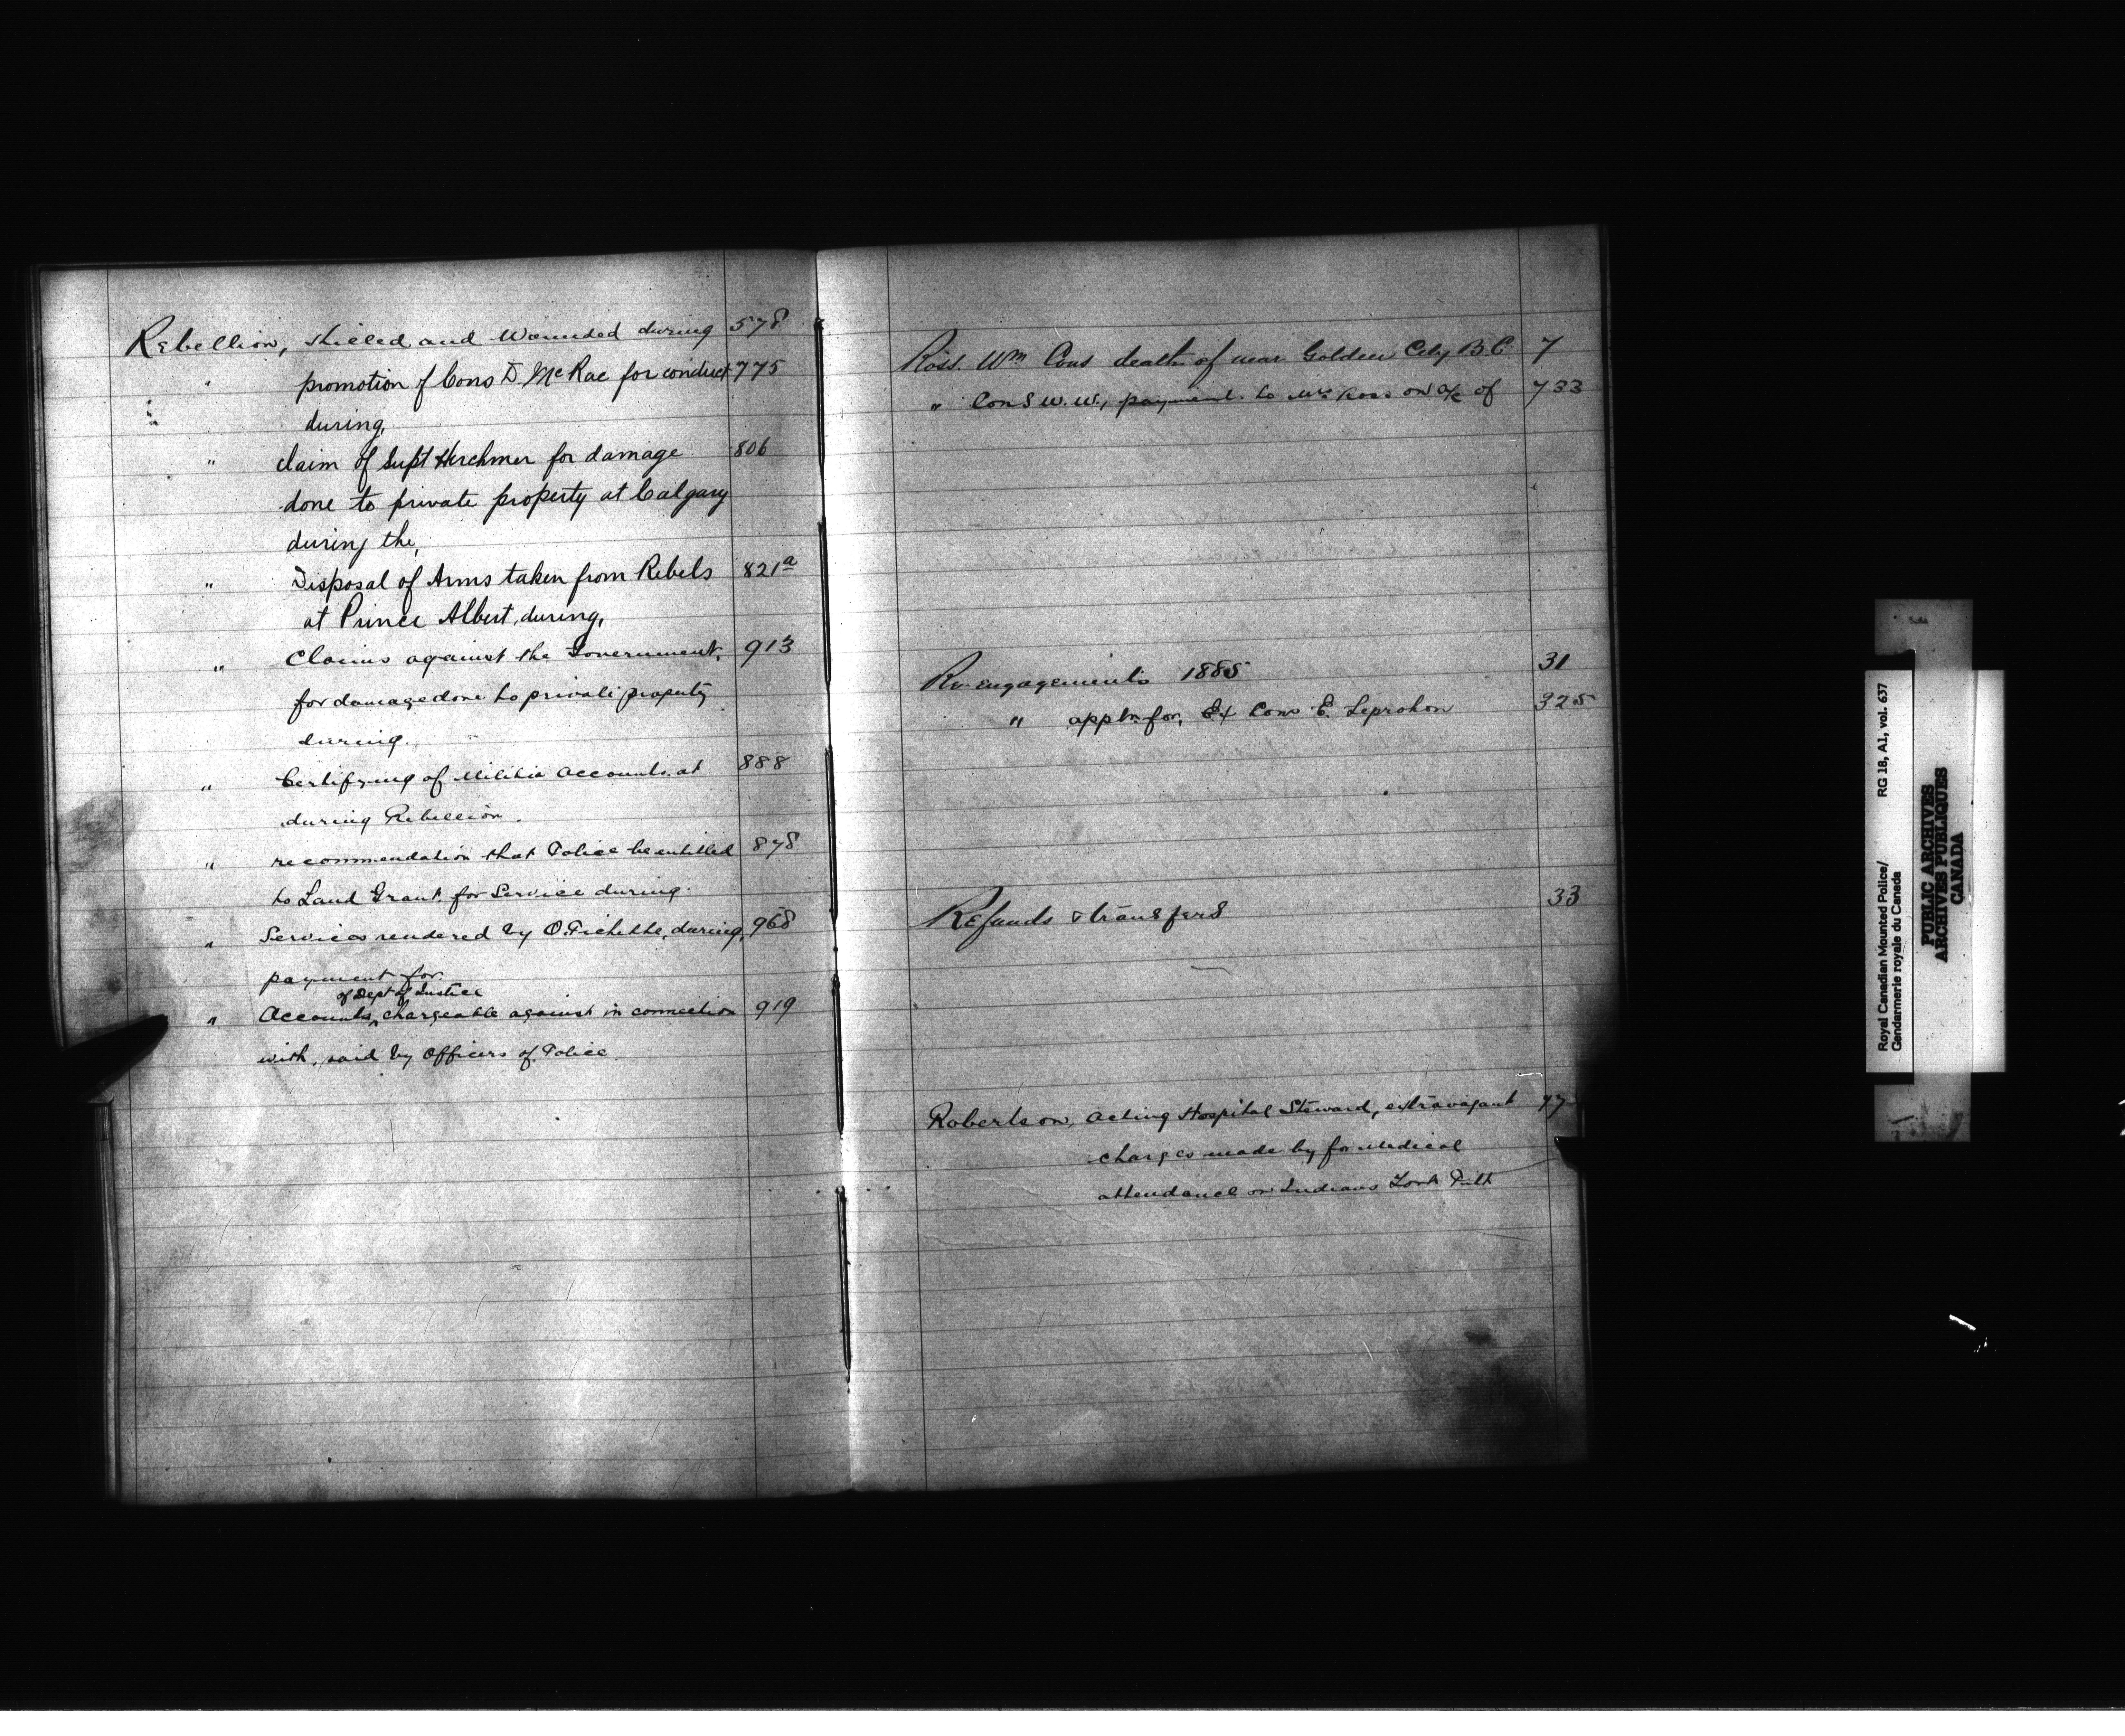 Rebellion, Killed and Wounded during 578
" promotion of Cons D. McRae for conduct 775
during,
" claim of Supt Herchmer for damage 806
done to private property at Calgary
during the,
" Disposal of Arms taken from Rebels 821a
at Prince Albert, during,
" Claims against the Government, 913
for damage done to private property
during.
" Certifying of Militia Accounts, at 888
during Rebellion.
" recommendation that Police be entitled 878
to Land Grant for Service during.
" Services rendered by O. Pichette, during, 968
payment for.
of Dept of Justice
" Accounts, chargeable against in connection 919
with, paid by Officers of Police.
Ross. Wm Cons death of near Golden City B.C 7
" Cons W. W., payment to Mrs Ross on a/c of 733
Re-engagements 1885 31
" appln for, Ex Cons E. Leprohon 325
Refunds & transfers 33
Robertson, Acting Hospital Steward, extravagant 77
charges made by for Medical
attendance on Indians Fort Pitt
Royal Canadian Mounted Police/
Gendarmerie royale du Canada
RG 18, A1, vol. 637
PUBLIC ARCHIVES
ARCHIVES PUBLIQUES
CANADA